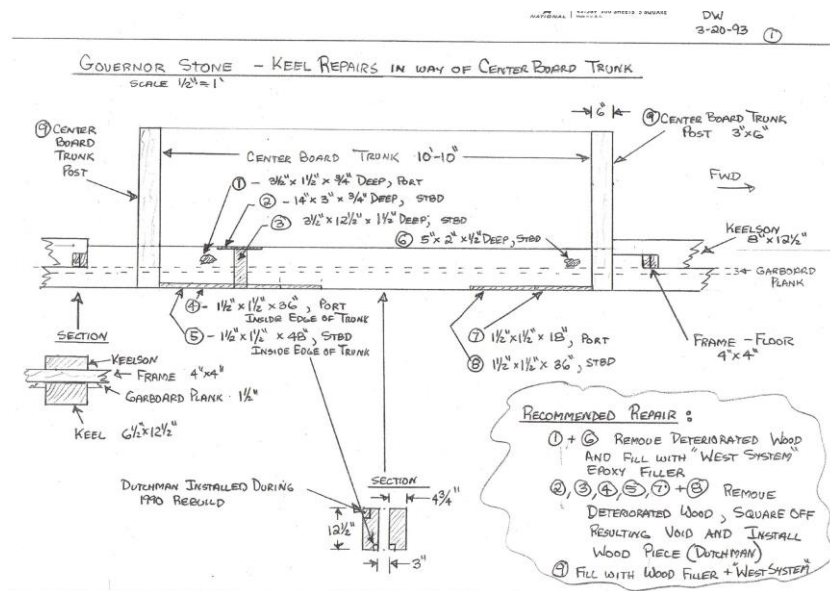 NATIONAL
DW
3-20-93 ①
GOVERNOR STONE - KEEL REPAIRS IN WAY OF CENTER BOARD TRUNK
SCALE 1/2" = 1'
⑨ CENTER
BOARD
TRUNK
POST
6"
⑨ CENTER BOARD TRUNK
POST 3"x6"
CENTER BOARD TRUNK 10'-10"
FWD
① - 3½"x 1½" x ¾" DEEP, PORT
② - 14"x 3" x 3/4" DEEP, STBD
③ 3½"x 12½"x 1½" DEEP, STBD
⑥ 5"x 2"x ½" DEEP, STBD
KEELSON
8"x12½"
GARBOARD
PLANK
④ - 1½"x 1½"x 36", PORT
INSIDE EDGE OF TRUNK
⑤ - 1½"x 1½"x 48", STBD
INSIDE EDGE OF TRUNK
⑦ 1½"x1½"x 18", PORT
⑧ 1½"x 1½"x 36", STBD
FRAME - FLOOR
4"x4"
SECTION
KEELSON
FRAME 4"x4"
GARBOARD PLANK 1½"
KEEL 6½"x12½"
DUTCHMAN INSTALLED DURING
1990 REBUILD
SECTION
4¾"
12½"
3"
RECOMMENDED REPAIR:
① + ⑥ REMOVE DETERIORATED WOOD
AND FILL WITH "WEST SYSTEM"
EPOXY FILLER
②,③,④,⑤,⑦ + ⑧ REMOVE
DETERIORATED WOOD, SQUARE OFF
RESULTING VOID AND INSTALL
WOOD PIECE (DUTCHMAN)
⑨ FILL WITH WOOD FILLER + "WEST SYSTEM"